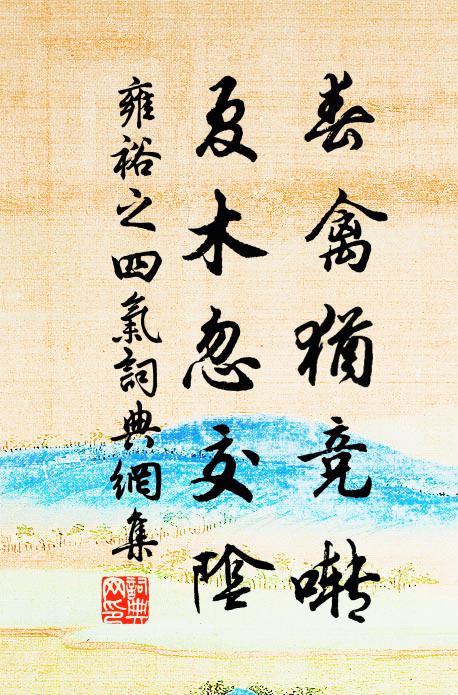 春禽猶競囀
夏木忽交陰
雍裕之四氣詞典網集